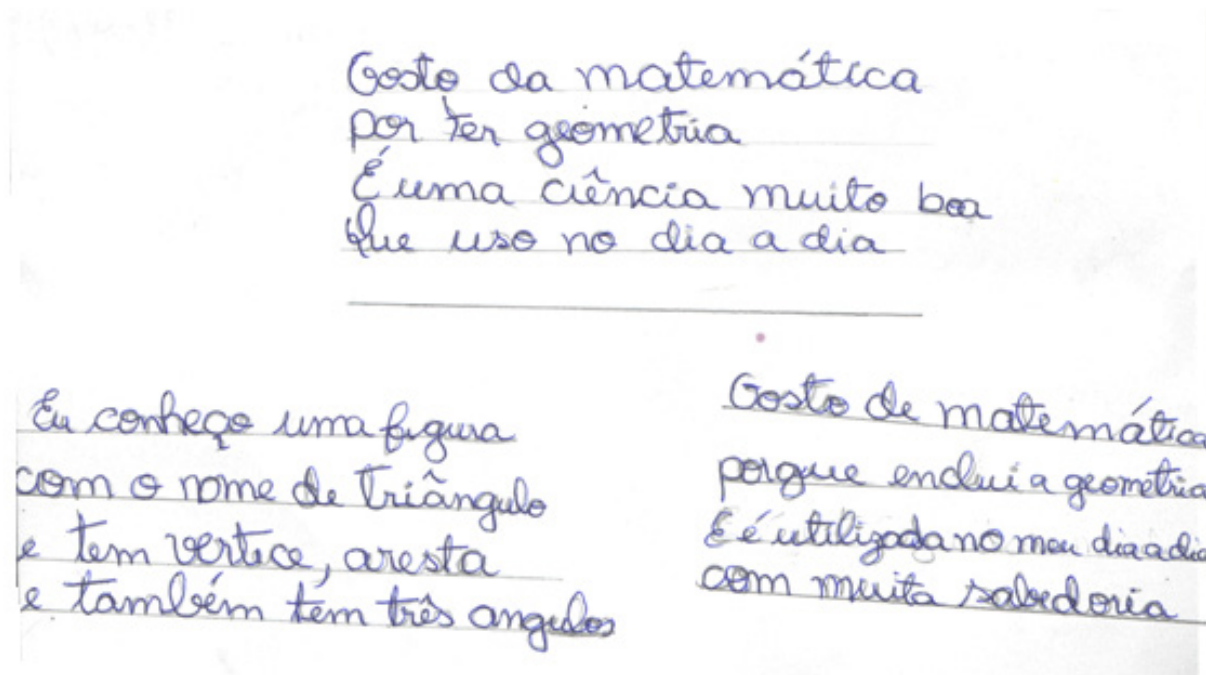 Gosto da matemática
por ter geometria
É uma ciência muito boa
Que uso no dia a dia
Eu conheço uma figura
com o nome de triângulo
e tem vertice, aresta
e também tem três angulos
Gosto de matemática
porque enclui a geometria
E é utilizada no meu dia a dia
com muita sabedoria